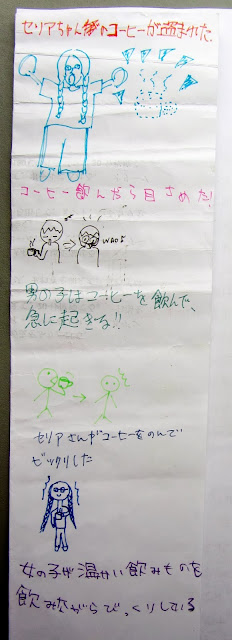 セリアちゃんのコーヒーが盗まれた.
コーヒー飲んだら目さめた!
男の子はコーヒーを飲んで、
急に起きる!!
セリアさんがコーヒーをのんで
ビックリした
女の子が温かい飲みものを
飲みながらびっくりしている